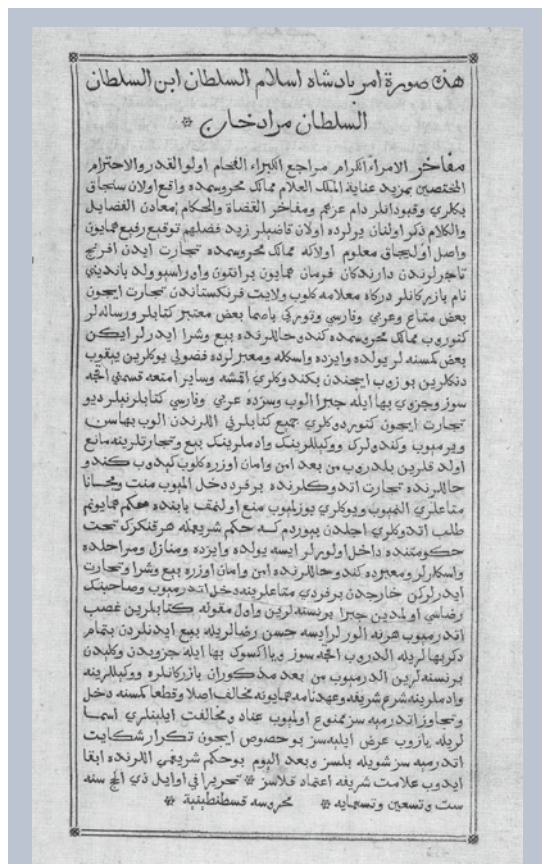 هذه صورة امر بادشاه اسلام السلطان ابن السلطان
السلطان مرادخان
مفاخر الامراء الكرام مراجع الكبراء الفخام اولو القدر والاحترام
المختصين بمزيد عناية الملك العلام ممالك محروسمده واقع اولان سنجاق
بكلرى وقبودانلر دام عزهم ومفاخر القضاة والحكام معادن الفضايل
والكلام ذكر اولنان يرلرده اولان قاضيلر زيد فضلهم توقيع رفيع همايون
واصل اوليجاق معلوم اولاكه ممالك محروسمده تجارت ايدن افرنج
تاجرلرندن دارندكان فرمان همايون برانتون واوراسيو ولد باندينى
نام بازركانلر دركاه معلامه كلوب ولايت فرنكستاندن تجارت ايجون
بعض متاع وعربى وفارسى وتوركى باصما بعض معتبر كتابلر ورساله لر
كتوروب ممالك محروسمده كندو حاللرنده بيع وشرا ايدرلر ايكن
بعض كمسنه لر يولده وايزده واسكله ومعبرلرده فضولى يوكلرين ييقوب
دنكلرين بوزوب ايجندن بكندوكلرى اقمشه وساير امتعه قسمنى اقجه
سوز وجزوى بها ايله جبرا الوب وسزده عربى وفارسى كتابلر نيلر ديو
تجارت ايجون كتوردوكلرى جميع كتابلرنى اللرندن الوب بهاسن
ويرميوب وكندولرك ووكيللرينك وادملرينك بيع وتجارتلرينه مانع
اولدقلرين بلدروب من بعد امن وامان اوزره كلوب كيدوب كندو
حاللرنده تجارت اتدوكلرنده بر فرد دخل المبوب منت ومجانا
متاعلرى المبوب ويوكلرى يوزلميوب منع اولنمق بابنده حكم همايونم
طلب اتدوكلرى اجلدن بيوردم كه حكم شريفمله هرقنكزك تحت
حكومتنده داخل اولورلر ايسه يولده وايزده ومنازل ومراحلده
واسكلرلر ومعبرده كندو حاللرنده امن وامان اوزره بيع وشرا وتجارت
ايدرلركن خارجدن بر فردى متاعلرينه دخل اتدرميوب وصاحبنك
رضاسى اولمدين جبرا برنسنه لرين واول مقوله كتابلرين غصب
اتدرميوب هرنه الورلر ايسه حسن رضالريله بيع ايدنلردن بتمام
دكر بهالريله الدروب اقجه سوز وياكسوك بها ايله جزويدن وكليدن
برنسنه لرين الدرميوب من بعد مذكوران بازركانلره ووكيللرينه
وادملرينه شرع شريفه وعهدنامه همايونه مخالف اصلا وقطعا كمسنه دخل
وتجاوز اتدرميه سز ممنوع اولميوب عناد ومخالفت ايلينلرى اسما
لريله يازوب عرض ايليه سز بو خصوص ايجون تكرار شكايت
اتدرميه سز شويله بلسز وبعد اليوم بو حكم شريفمى اللرنده ابقا
ايدوب علامت شريفه اعتماد قلاسز تحريرا فى اوايل ذى الحج سنه
ست وتسعين وتسعمايه محروسه قسطنطينية